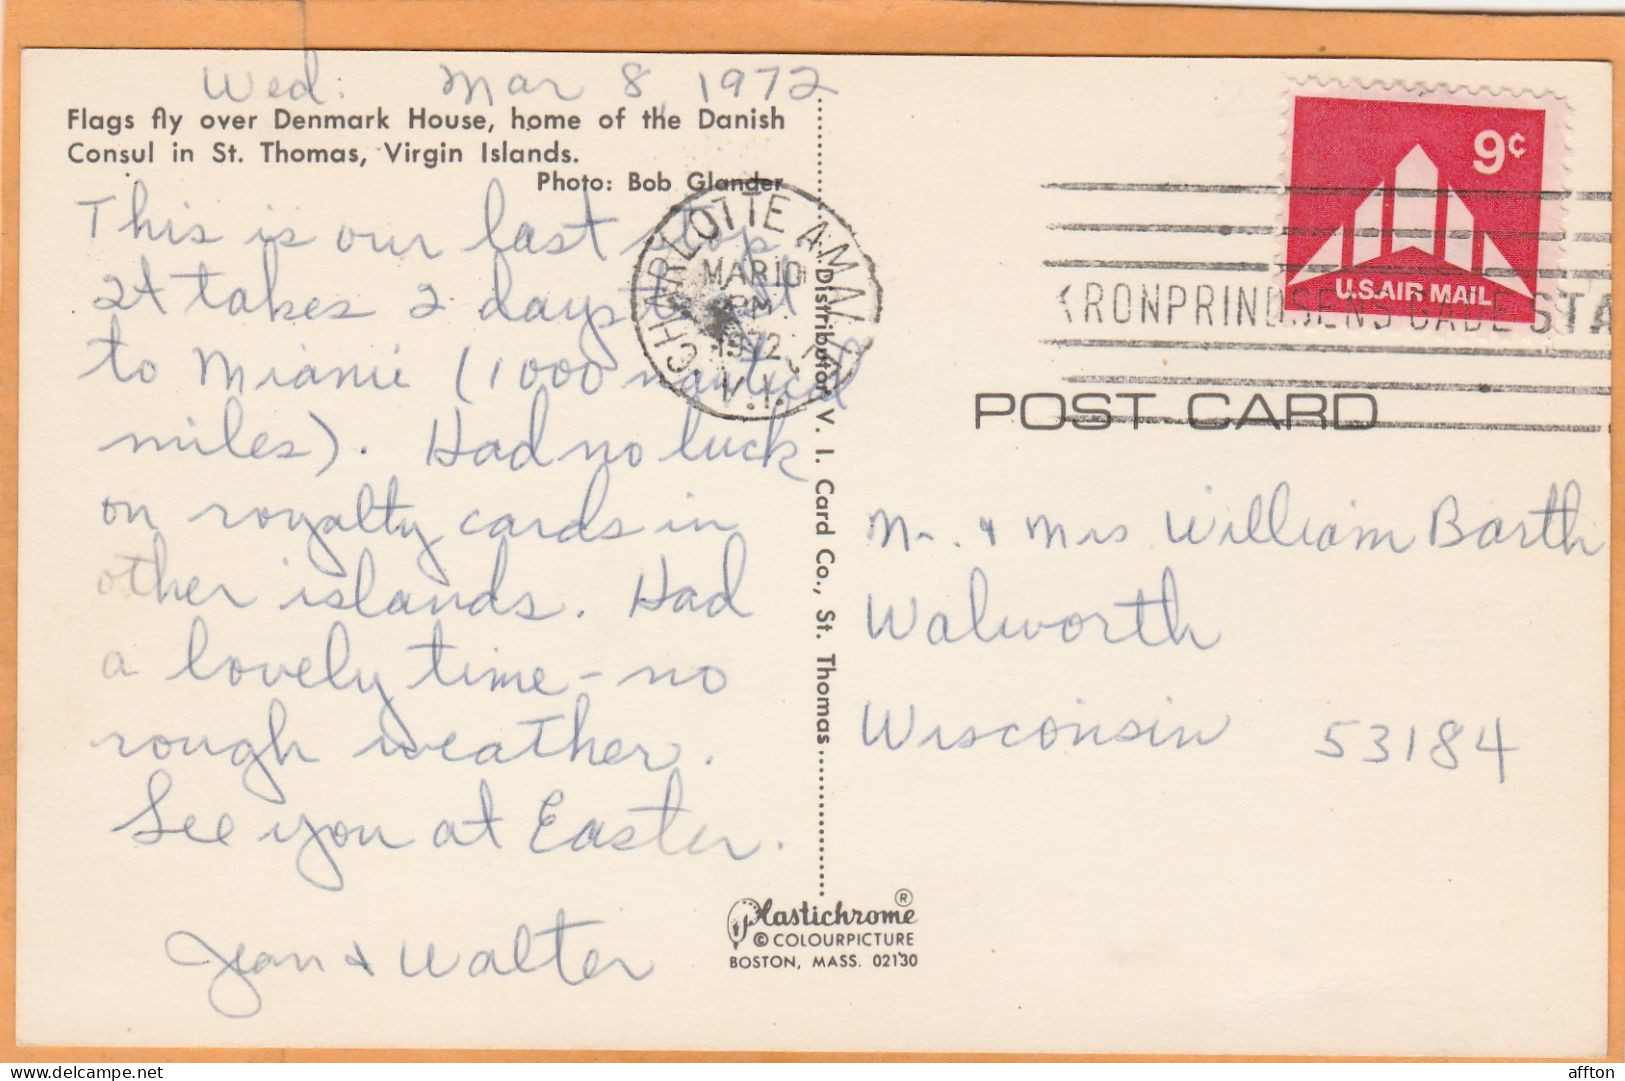 Wed. Mar 8, 1972
Flags fly over Denmark House, home of the Danish
Consul in St. Thomas, Virgin Islands.
Photo: Bob Glander
This is our last stop.
It takes 2 days to get
to Miami (1000 nautical
miles). Had no luck
on royalty cards in
other islands. Had
a lovely time - no
rough weather.
See you at Easter.
Jean & Walter
CHARLOTTE AMALIE
MAR 10
PM
1972
V.I.
Distributor: V. I. Card Co., St. Thomas
Plastichrome ®
© COLOURPICTURE
BOSTON, MASS. 02130
9¢
U.S. AIR MAIL
KRONPRINDSENS GADE STA
POST CARD
Mr. & Mrs. William Barth
Walworth
Wisconsin 53184
affton